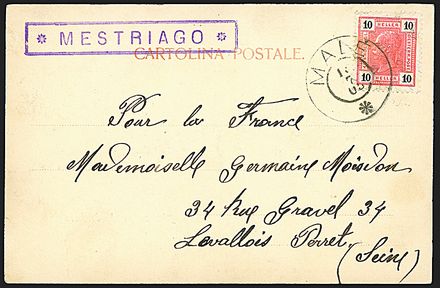 * MESTRIAGO *
CARTOLINA POSTALE.
10 HELLER 10
10 HELLER 10
MALÈ
Pour la France
Mademoiselle Germaine Moisdon
34 Rue Gravel 34
Levallois Perret
(Seine)